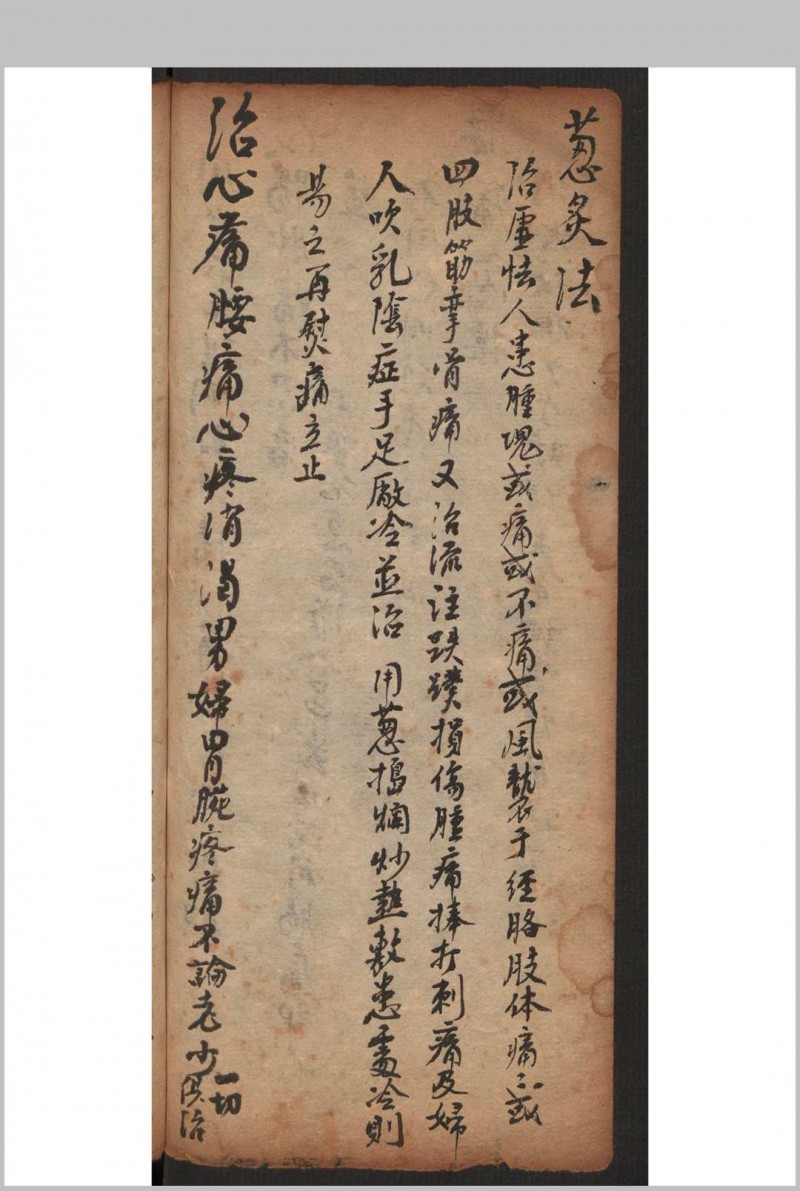 葱灸法
治虛怯人患腫塊或痛或不痛或風襲于經胳肢体痛或
四肢筋挛骨痛又治流注跌撲損傷腫痛捧打刺痛及婦
人吹乳陰症手足厥冷並治 用葱搗爛炒熱敷患處冷則
易之再熨痛立止
治心痛腰痛心疼消渴男婦胃脘疼痛不論老少一切俱治